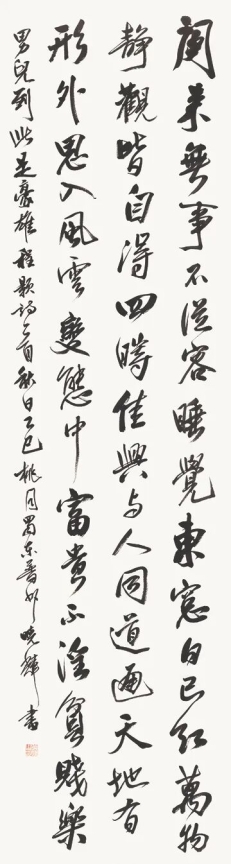 閑来無事不從容睡覺東窓日已紅萬物
静觀皆自得四時佳興与人同道通天地有
形外思入風雲變態中富貴不淫貧賤樂
男兒到此是豪雄程顥詩一首秋日乙巳桃月蜀東晉州曉輝書